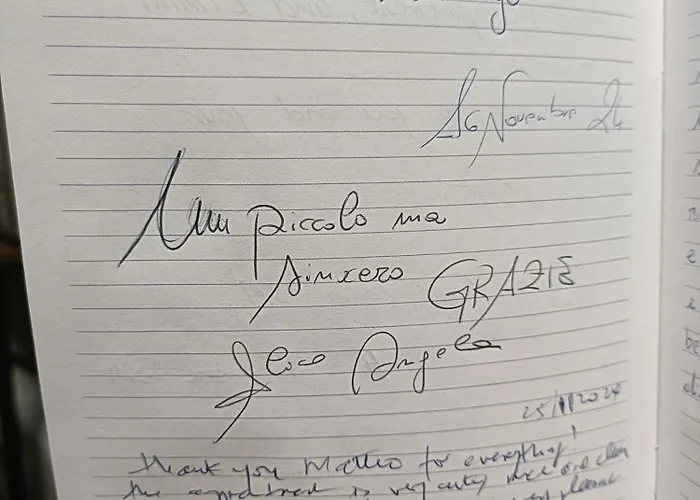 16 Novembre 24
Un piccolo ma
sincero GRAZIE
Angela
25/11/2024
Thank you Matteo for everything!
the apartment is very